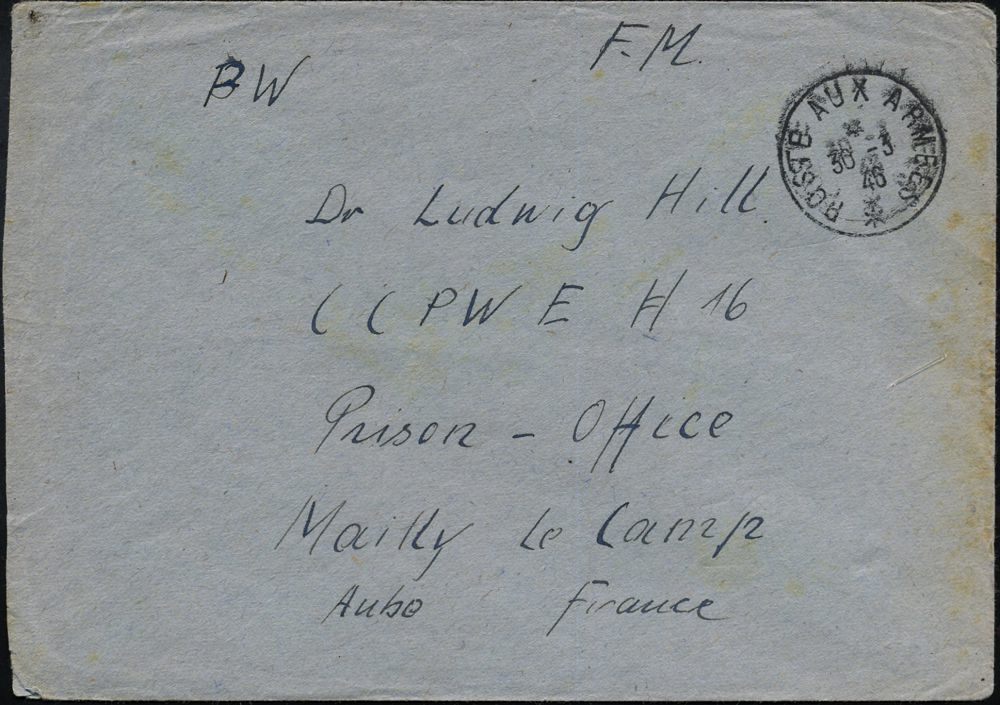 BW
F.M.
POSTE AUX ARMEES
30 -3
46
Dr Ludwig Hill
CCPWE H 16
Prison - Office
Mailly le Camp
Aube France